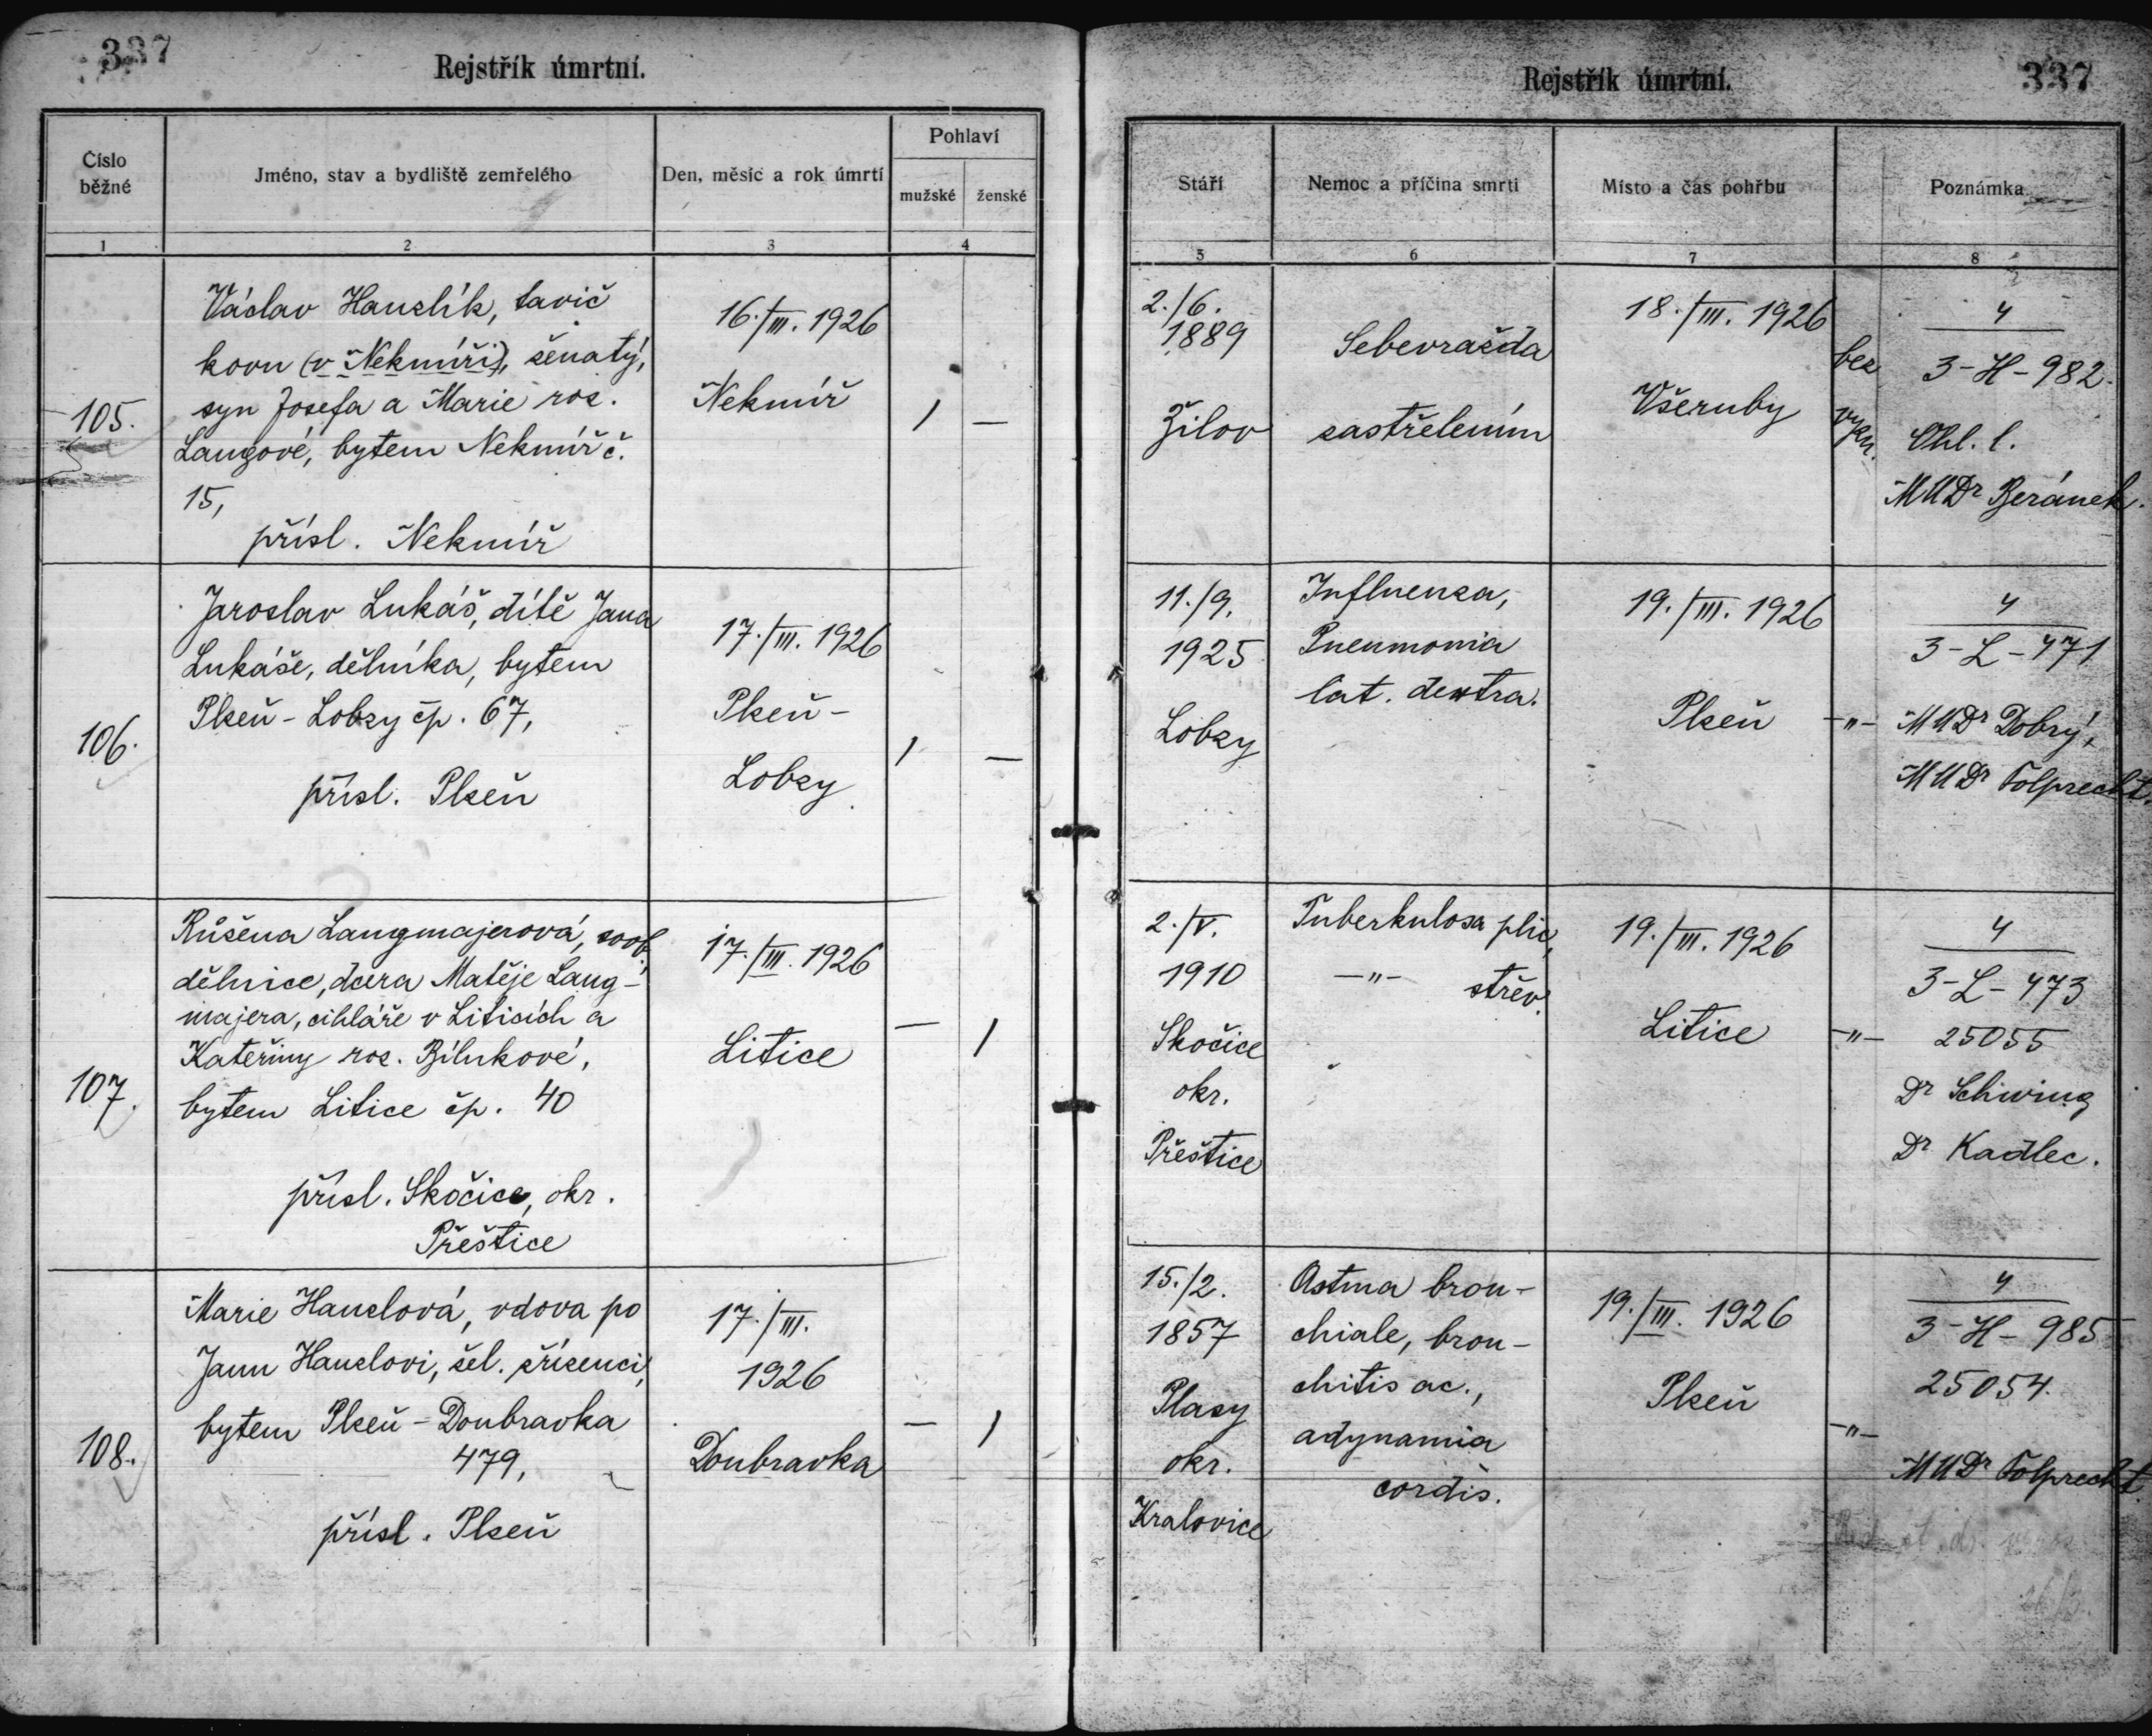 337
Rejstřík úmrtní.
Číslo běžné
Jméno, stav a bydliště zemřelého
Den, měsíc a rok úmrtí
Pohlaví
mužské
ženské
1
2
3
4
105.
Václav Hanzlík, tavič
kovu (v Nekmíři), ženatý,
syn Josefa a Marie roz.
Langové, bytem Nekmíř č.
15,
přísl. Nekmíř
16./III. 1926
Nekmíř
1
—
106.
Jaroslav Lukáš, dítě Jana
Lukáše, dělníka, bytem
Plzeň - Lobzy čp. 67,
přísl. Plzeň
17./III. 1926
Plzeň -
Lobzy
1
—
107.
Růžena Langmajerová, svob.
dělnice, dcera Matěje Lang-
majera, cihláře v Liticích a
Kateřiny roz. Bílukové,
bytem Litice čp. 40
přísl. Skočice, okr.
Přeštice
17./III. 1926
Litice
—
1
108.
Marie Hanzlová, vdova po
Janu Hanzlovi, žel. zřízenci,
bytem Plzeň - Doubravka
479,
přísl. Plzeň
17./III.
1926
Doubravka
—
1
Rejstřík úmrtní.
337
Stáří
Nemoc a příčina smrti
Místo a čas pohřbu
Poznámka
5
6
7
8
2./6.
1889
Žilov
Sebevražda
zastřelením
18./III. 1926
Všeruby
bez
vyzn.
4
3-H-982.
Ohl. l.
MUDr Beránek.
11./9.
1925
Lobzy
Influenza,
Pneumonia
lat. dextra.
19./III. 1926
Plzeň
-"-
4
3-L-471
MUDr Dobrý,
MUDr Folprecht.
2./V.
1910
Skočice
okr.
Přeštice
Tuberkulosa plic,
-"- střev.
19./III. 1926
Litice
-"-
4
3-L-473
25055
Dr Schwing
Dr Kadlec.
15./2.
1857
Plasy
okr.
Kralovice
Astma bron-
chiale, bron-
chitis ac.,
adynamia
cordis.
19./III. 1926
Plzeň
-"-
4
3-H-985
25054.
MUDr Folprecht.
26/3.